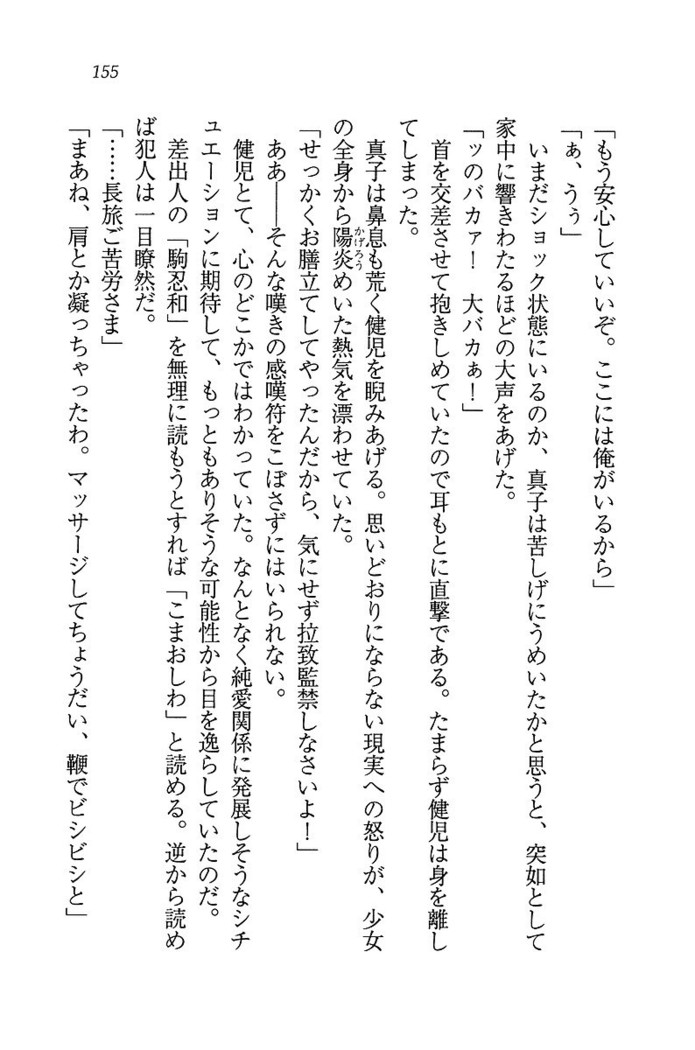 155
「もう安心していいぞ。ここには俺がいるから」
「ぁ、うぅ」
いまだショック状態にいるのか、真子は苦しげにうめいたかと思うと、突如として
家中に響きわたるほどの大声をあげた。
「ッのバカァ！　大バカぁ！」
首を交差させて抱きしめていたので耳もとに直撃である。たまらず健児は身を離し
てしまった。
真子は鼻息も荒く健児を睨みあげる。思いどおりにならない現実への怒りが、少女
の全身から陽炎めいた熱気を漂わせていた。
かげろう
「せっかくお膳立てしてやったんだから、気にせず拉致監禁しなさいよ！」
ああ――そんな嘆きの感嘆符をこぼさずにはいられない。
健児とて、心のどこかではわかっていた。なんとなく純愛関係に発展しそうなシチ
ュエーションに期待して、もっともありそうな可能性から目を逸らしていたのだ。
差出人の「駒忍和」を無理に読もうとすれば「こまおしわ」と読める。逆から読め
ば犯人は一目瞭然だ。
「……長旅ご苦労さま」
「まあね、肩とか凝っちゃったわ。マッサージしてちょうだい、鞭でビシビシと」